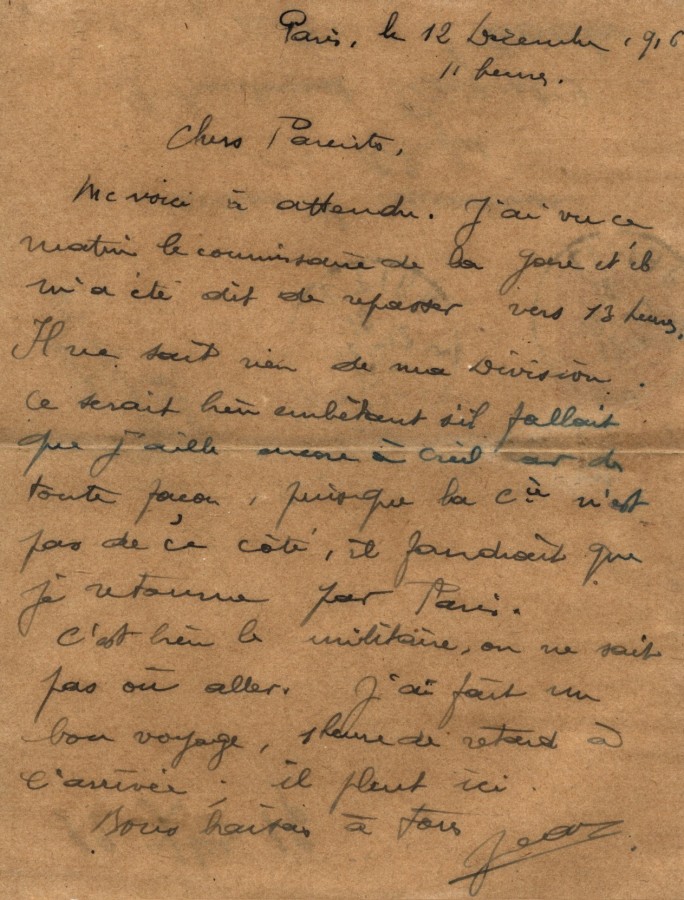 Paris, le 12 Décembre 1916
11 heures.
Chers Parents,
Me voici à attendre. J'ai vu ce
matin le commissaire de la gare et il
m'a été dit de repasser vers 13 heures.
Il ne sait rien de ma Division.
Ce serait bien embêtant s'il fallait
que j'aille encore à Creil car de
toute façon, puisque la Cie n'est
pas de ce côté, il faudrait que
je retourne par Paris.
C'est bien le militaire, on ne sait
pas où aller. J'ai fait un
bon voyage, 1 heure de retard à
l'arrivée ; il pleut ici.
Bons baisers à tous
Jean